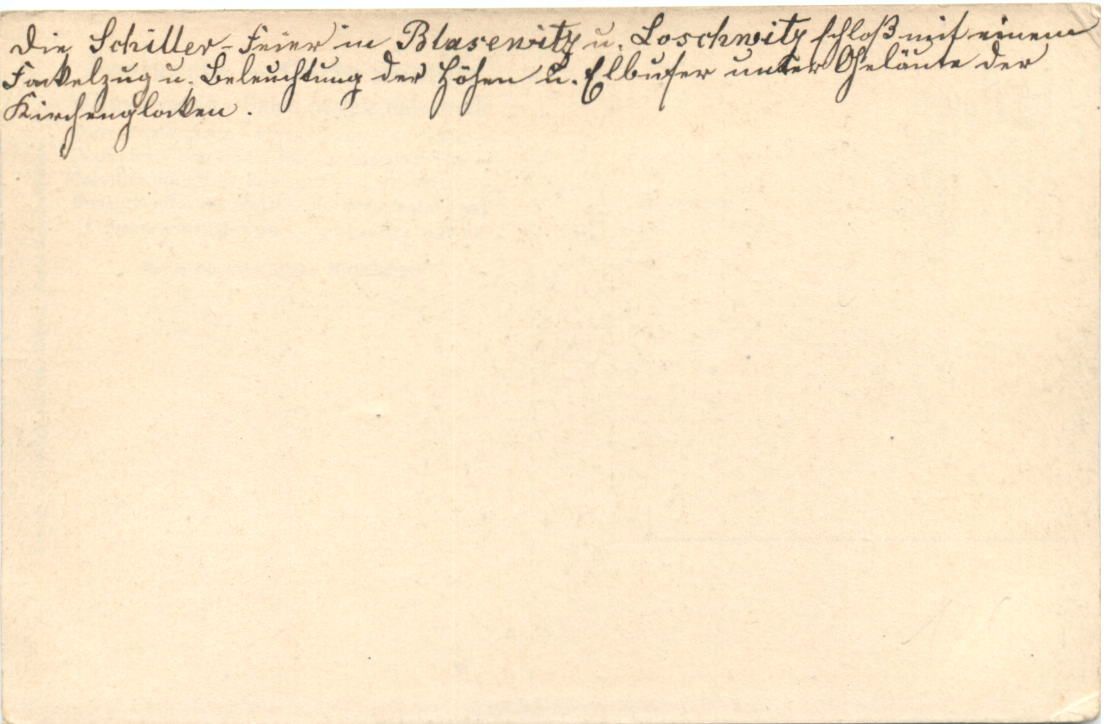 Die Schiller-Feier in Blasewitz u. Loschwitz schloß mit einem
Fackelzug u. Beleuchtung der Höhen u. Elbufer unter Geläute der
Kirchenglocken.